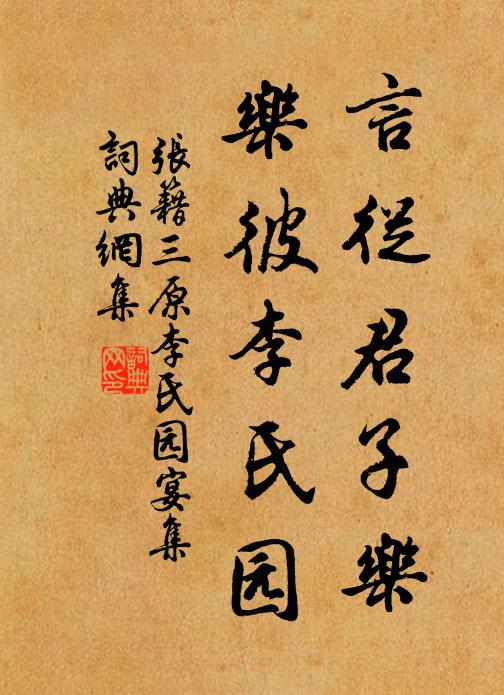 言從君子樂
樂彼李氏园
張籍三原李氏园宴集
詞典網集
詞典网印